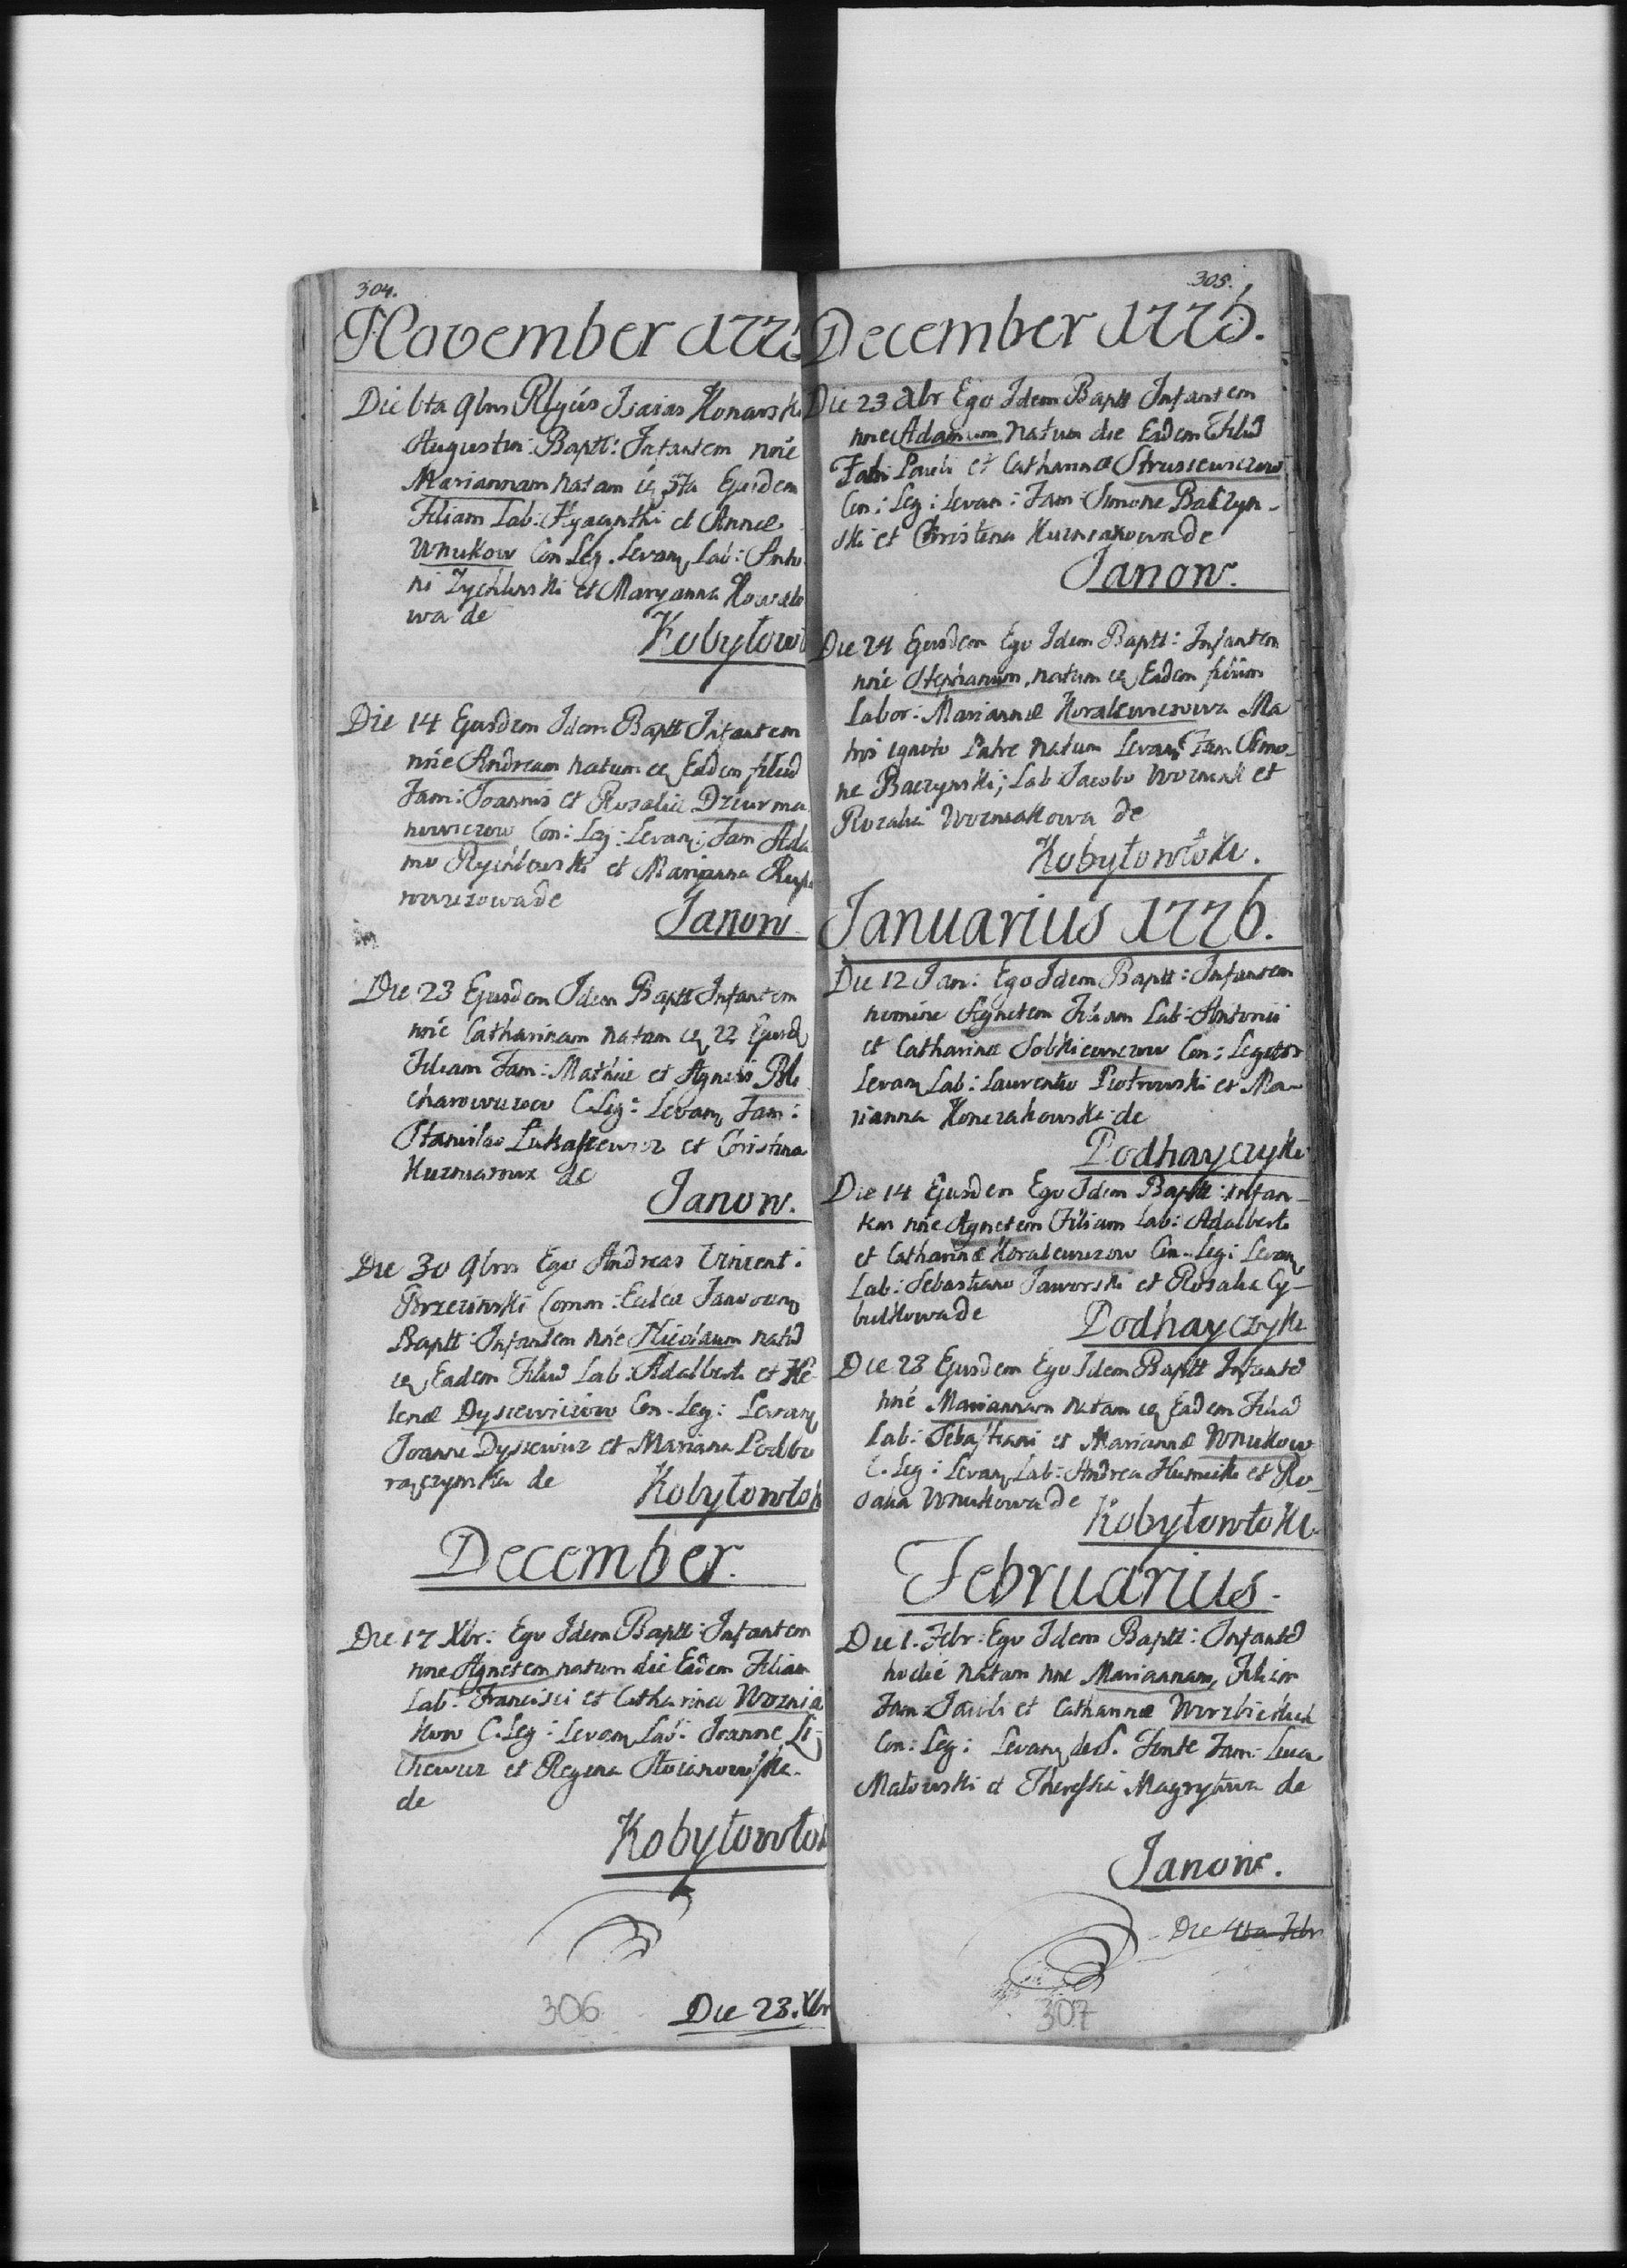 304.
November 1775
Die 6ta 9bris Rlgius Isaias Konarski
Augustin: Baptt: Infantem nõie
Mariannam natam 5ta Ejusdem
Filiam Lab: Hyacinthi et Annæ
Wnukow Con Leg. Levan Lab: Anto
ni Zychlinski et Maryanna Kowalo
wa de
Kobyłow
Die 14 Ejusdem Idem Baptt Infantem
nõie Andream natum Eadem filiũ
Fam: Joannis et Rosaliæ Dziurma
nowiczow Con: Leg: Levan: Fam Ada
mo Rychlowski et Marijanna
nowiczowa de
Janow
Die 23 Ejusdem Idem Baptt Infantem
nõie Catharinam natam 22 Ejusd
Filiam Fam: Mathiæ et Agnetis Ble
charowiczow C. Leg: Levan Fam:
Stanislao Lukasiewicz et Cristina
de
Janow.
Die 30 9bris Ego Andreas Vincent:
Brzezinski Comm: Eccleæ Janovien
Baptt: Infantem nõie Nicolaum natũ
Eadem Filiũ Lab: Adalberti et He
lenæ Dysiewiczow Con. Leg: Levan
Joanne Dyssiewicz et Mariana Podbo
raczynska de
Kobyłowłok
December.
Die 17 Xbr: Ego Idem Baptt: Infantem
nõie Agnetem natam die Eadem Filiam
Lab: Francisci et Catharinæ Woznia
kow C. Leg: Levan Lab: Joanne Li-
siewicz et Regina Stoianowska.
de
Kobyłowłok
306
Die 23. Xbr
305.
December 1775.
Die 23 Xbr Ego Idem Baptt Infantem
nõie Adamum natum die Eadem Filiũ
Fam: Pauli et Catharinæ Strusiewiczow
Con: Leg: Levan: Fam: Simone Baczyn-
ski et Christina Kuzniakowa de
Janow.
Die 24 Ejusdem Ego Idem Baptt: Infantem
nõie Stephanum, natum Eadem filium
Labor: Mariannæ Koralewiczowa Ma
tris ignoto Patre natum Levan Fam Simo-
ne Baczynski; Lab Jacobo Wozniak et
Rozalia Wozniakowa de
Kobyłowłoki.
Januarius 1776.
Die 12 Jan: Ego Idem Baptt: Infantem
nomine Agnetem Filiam Lab: Antonii
et Catharinæ Sobkiewiczow Con: Legitor
Levan Lab: Laurentio Piotrowski et Ma-
rianna Konczakowska de
Podhayczyki
Die 14 Ejusdem Ego Idem Baptt: infan-
tem nõie Agnetem Filiam Lab: Adalberti
et Catharinæ Koralewiczow Con. Leg: Levan
Lab: Sebastiano Jaworski et Rosalia Cy-
bulkowa de
Podhayczyki
Die 23 Ejusdem Ego Idem Baptt Infantẽ
nõie Mariannam natam Eadem Filiã
Lab: Sebastiani et Mariannæ Wnukow
C. Leg: Levan Lab: Andrea et Ro-
salia Wnukowa de
Kobyłowłoki
Februarius.
Die 1. Febr: Ego Idem Baptt: Infantẽ
hodie natam nõe Mariannam, Filiam
Fam: Pauli et Catharinæ Wierzbickich
Con: Leg: Levan de S. Fonte Fam: Luca
Małowski et Theressia de
Janow.
Die 4ta Febr
307